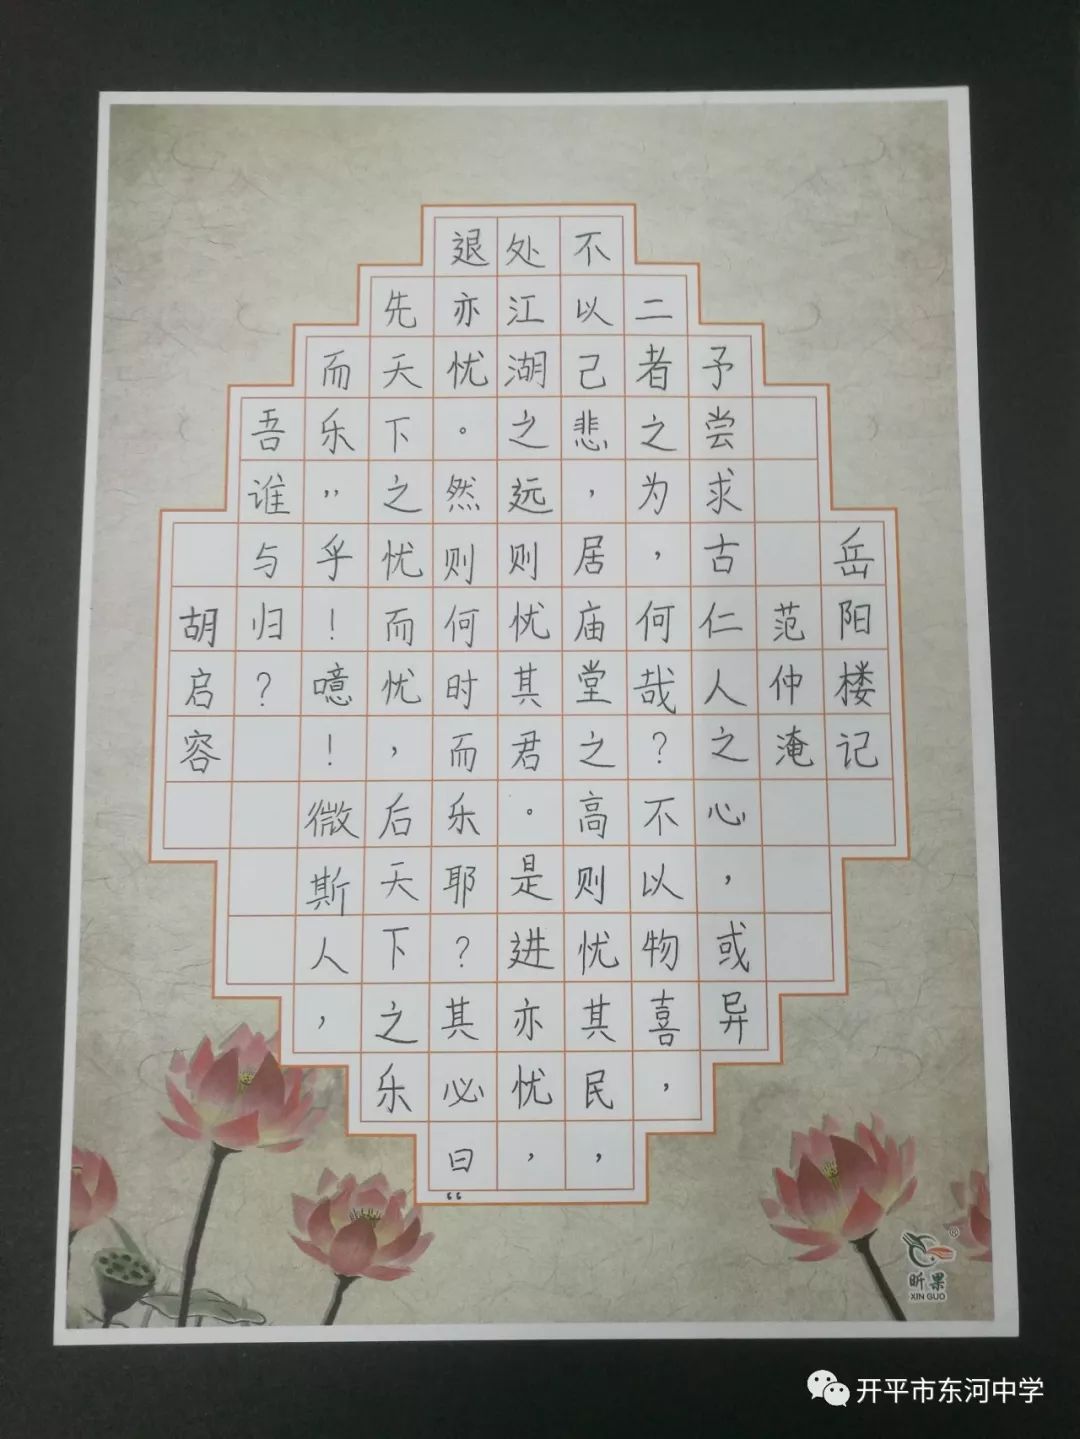 岳阳楼记
范仲淹
予尝求古仁人之心，或异
二者之为，何哉？不以物喜，
不以己悲，居庙堂之高则忧其民，
处江湖之远则忧其君。是进亦忧，
退亦忧。然则何时而乐耶？其必曰“
先天下之忧而忧，后天下之乐
而乐”乎！噫！微斯人，
吾谁与归？
胡启容
昕果
XIN GUO
开平市东河中学